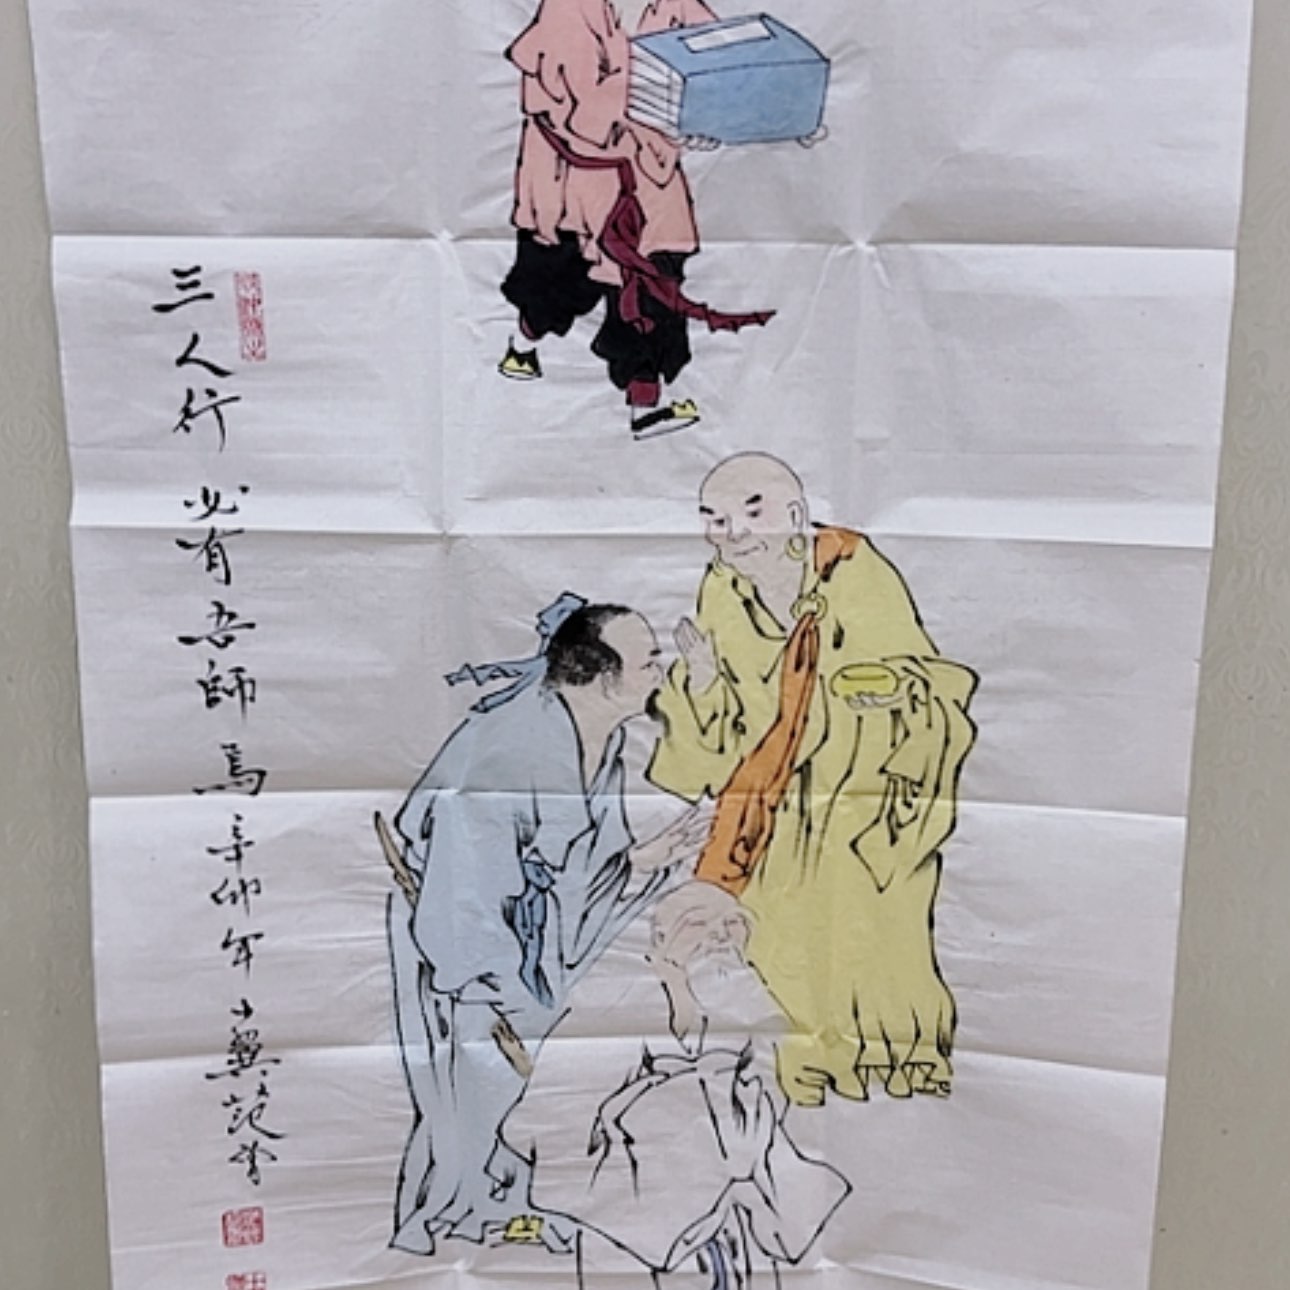 三人行必有吾師焉辛卯年